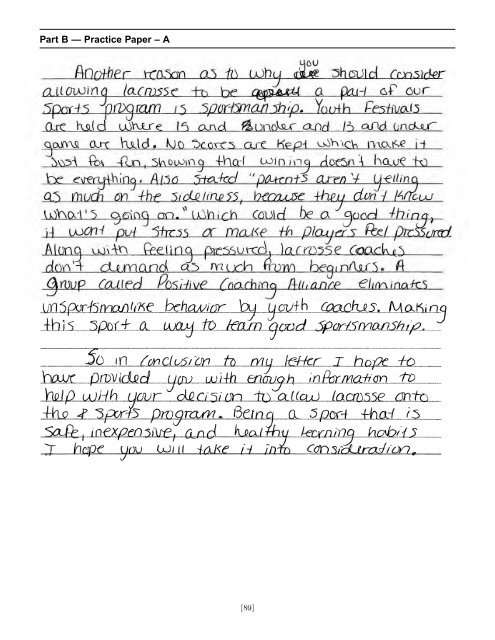 Part B — Practice Paper – A
Another reason as to why you should consider
allowing lacrosse to be a part of our
sports program is sportsmanship. Youth Festivals
are held where 15 and under and 13 and under
game are held. No scores are kept which make it
Just for fun, showing that wining doesn't have to
be everything. Also stated "parents aren't yelling
as much on the sideliness, because they don't know
what's going on." Which could be a good thing,
it wont put stress or make th players feel pressured.
Along with feeling pressured, lacrosse coaches
don't demand as much from beginners. A
group called Positive Coaching Alliance eliminates
unsportsmanlike behavior by youth coaches. Making
this sport a way to learn good sportsmanship.
So in conclusion to my letter I hope to
have provided you with enough information to
help with your decision to allow lacrosse onto
the sports program. Being a sport that is
safe, inexpensive, and healthy learning habits
I hope you will take it into consideration.
[89]